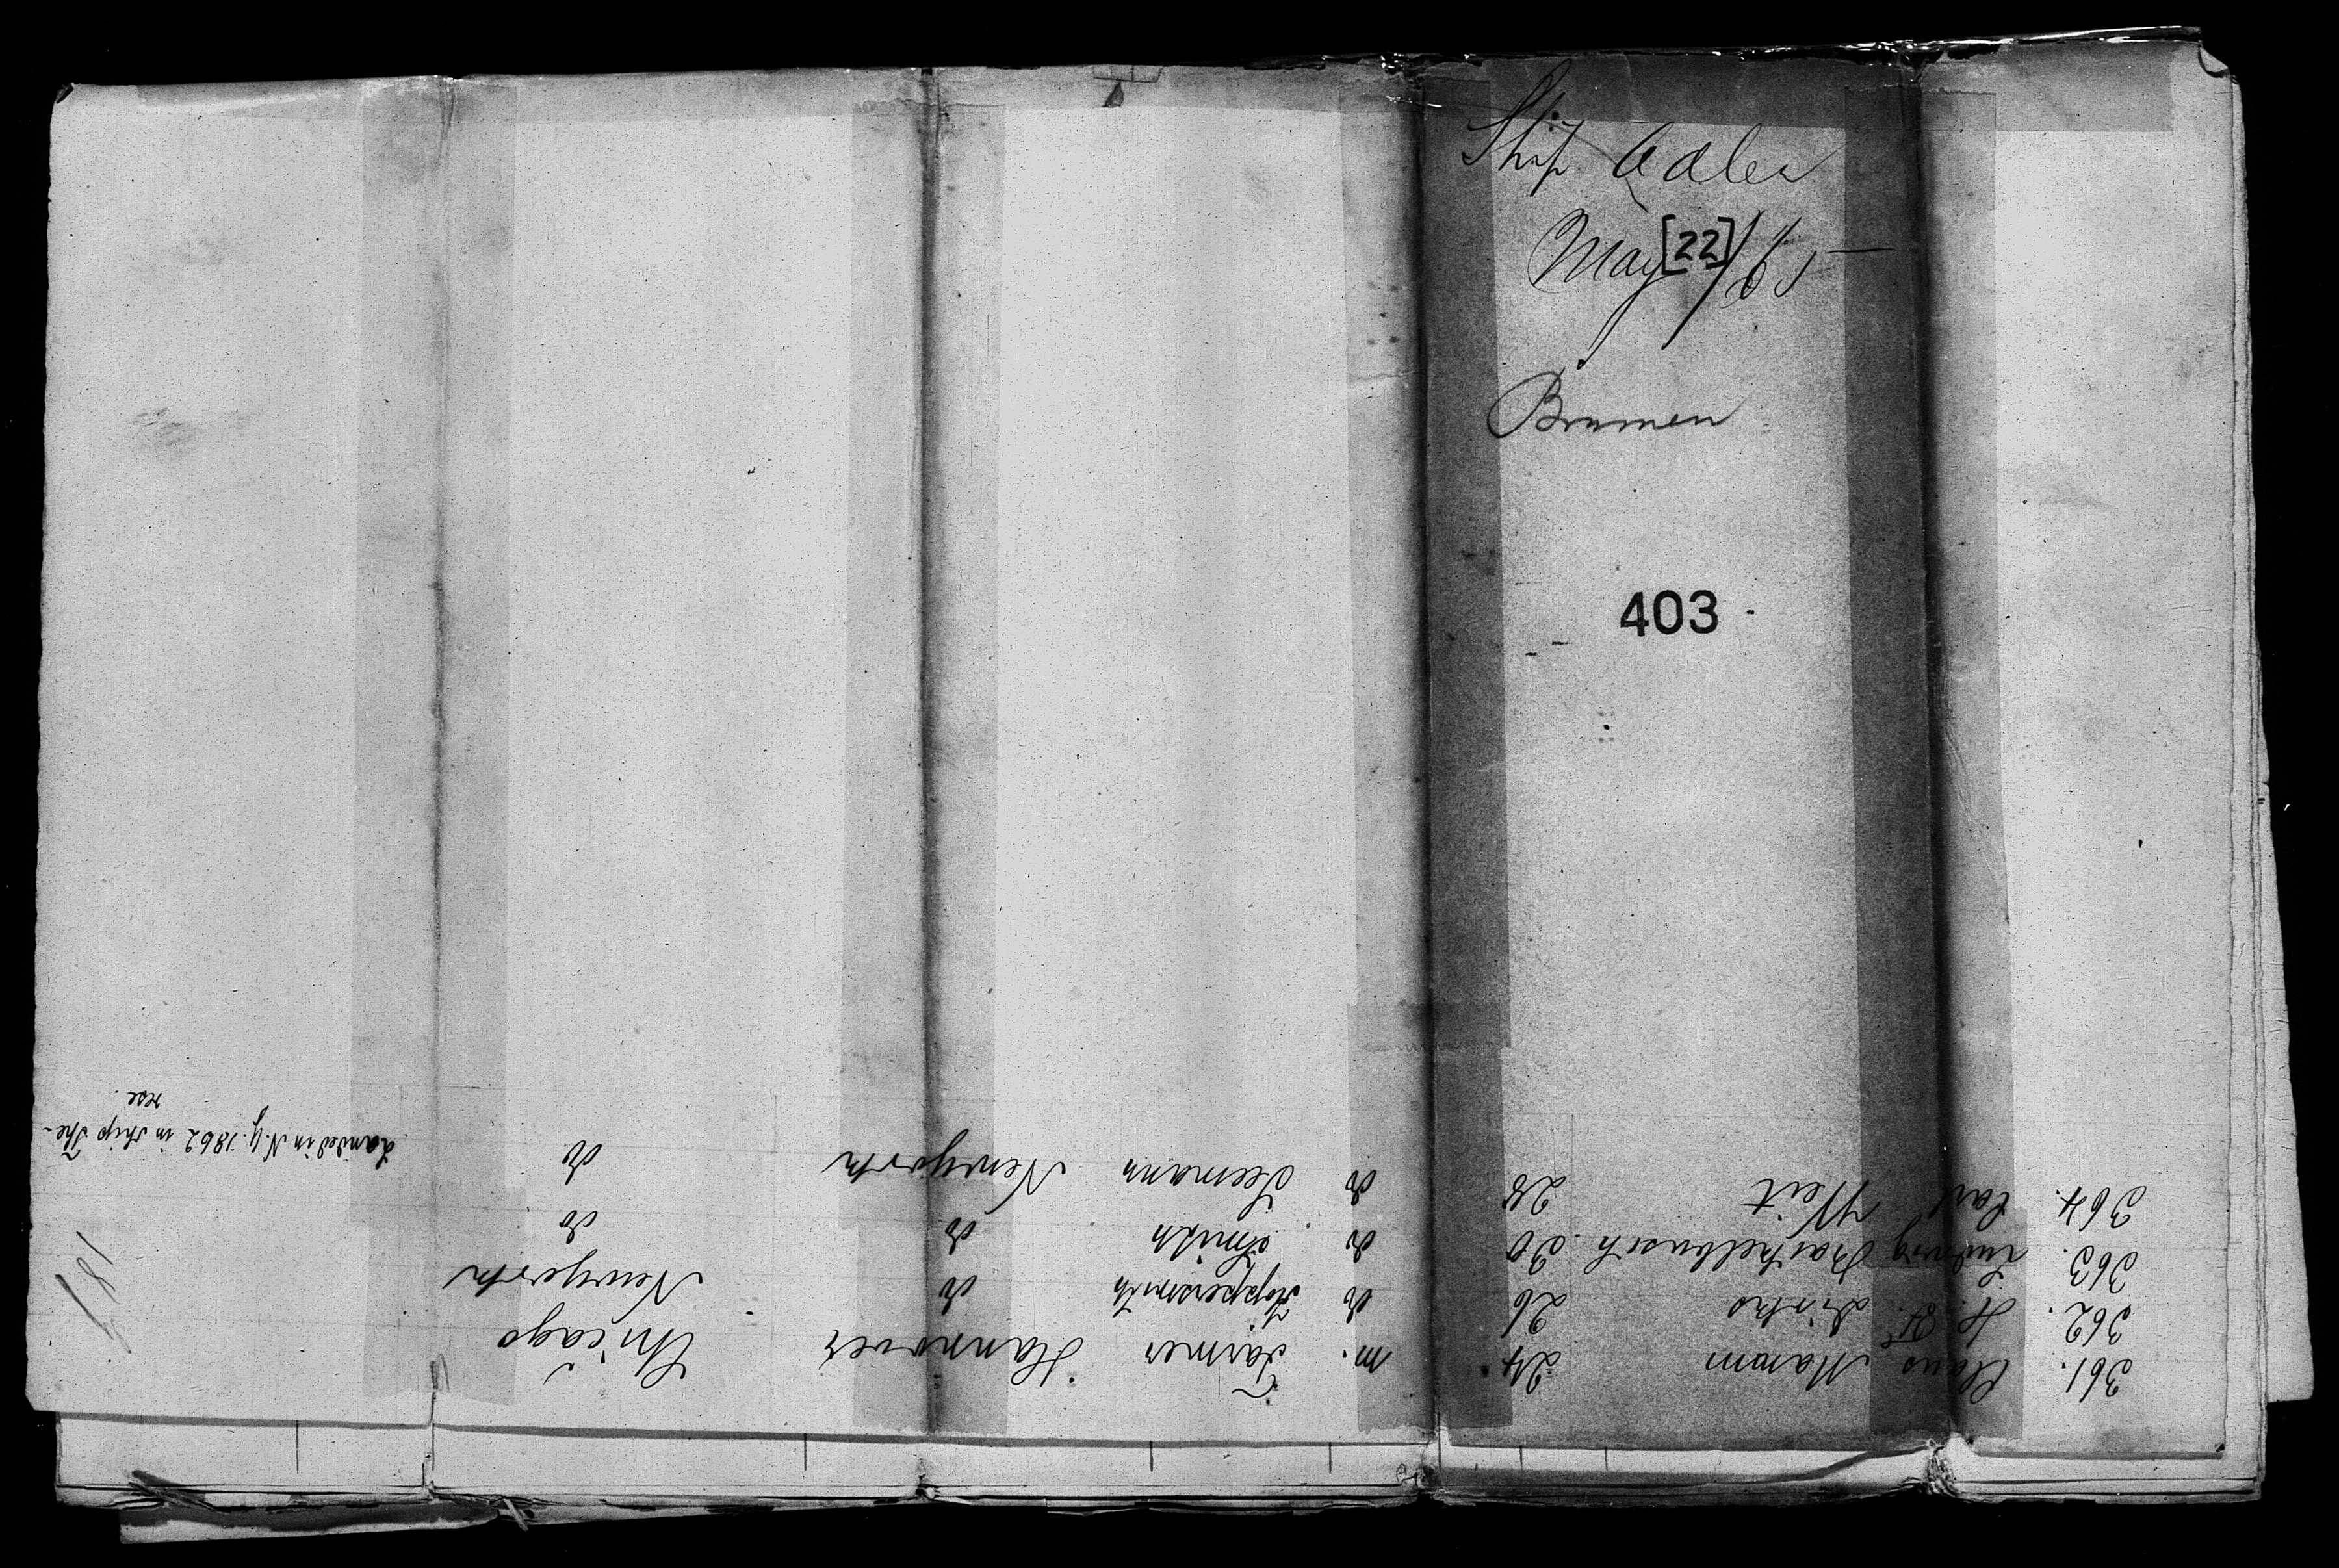 Ship Adler
May [22]/65
Bremen
403
361. Claus Mamm 24 m. Farmer Hannover Chicago
362. H. Hr. Dirks 26 do Koppersmith do Newyork
363. Ludwig Barkelbusch 30 do Smith do do
364. Carl Weit 28 do Seemann Newyork do Landed in N.Y. 1862 in ship The-
rese.